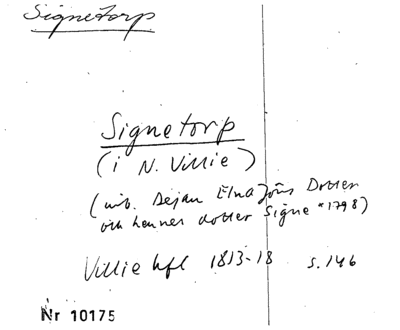 Signetorp
Signetorp
(i N. Villie)
(inb. Dejan Elna Jöns Dotter
och hennes dotter Signe *1798)
Villie hfl 1813-18 s. 146
Nr 10175